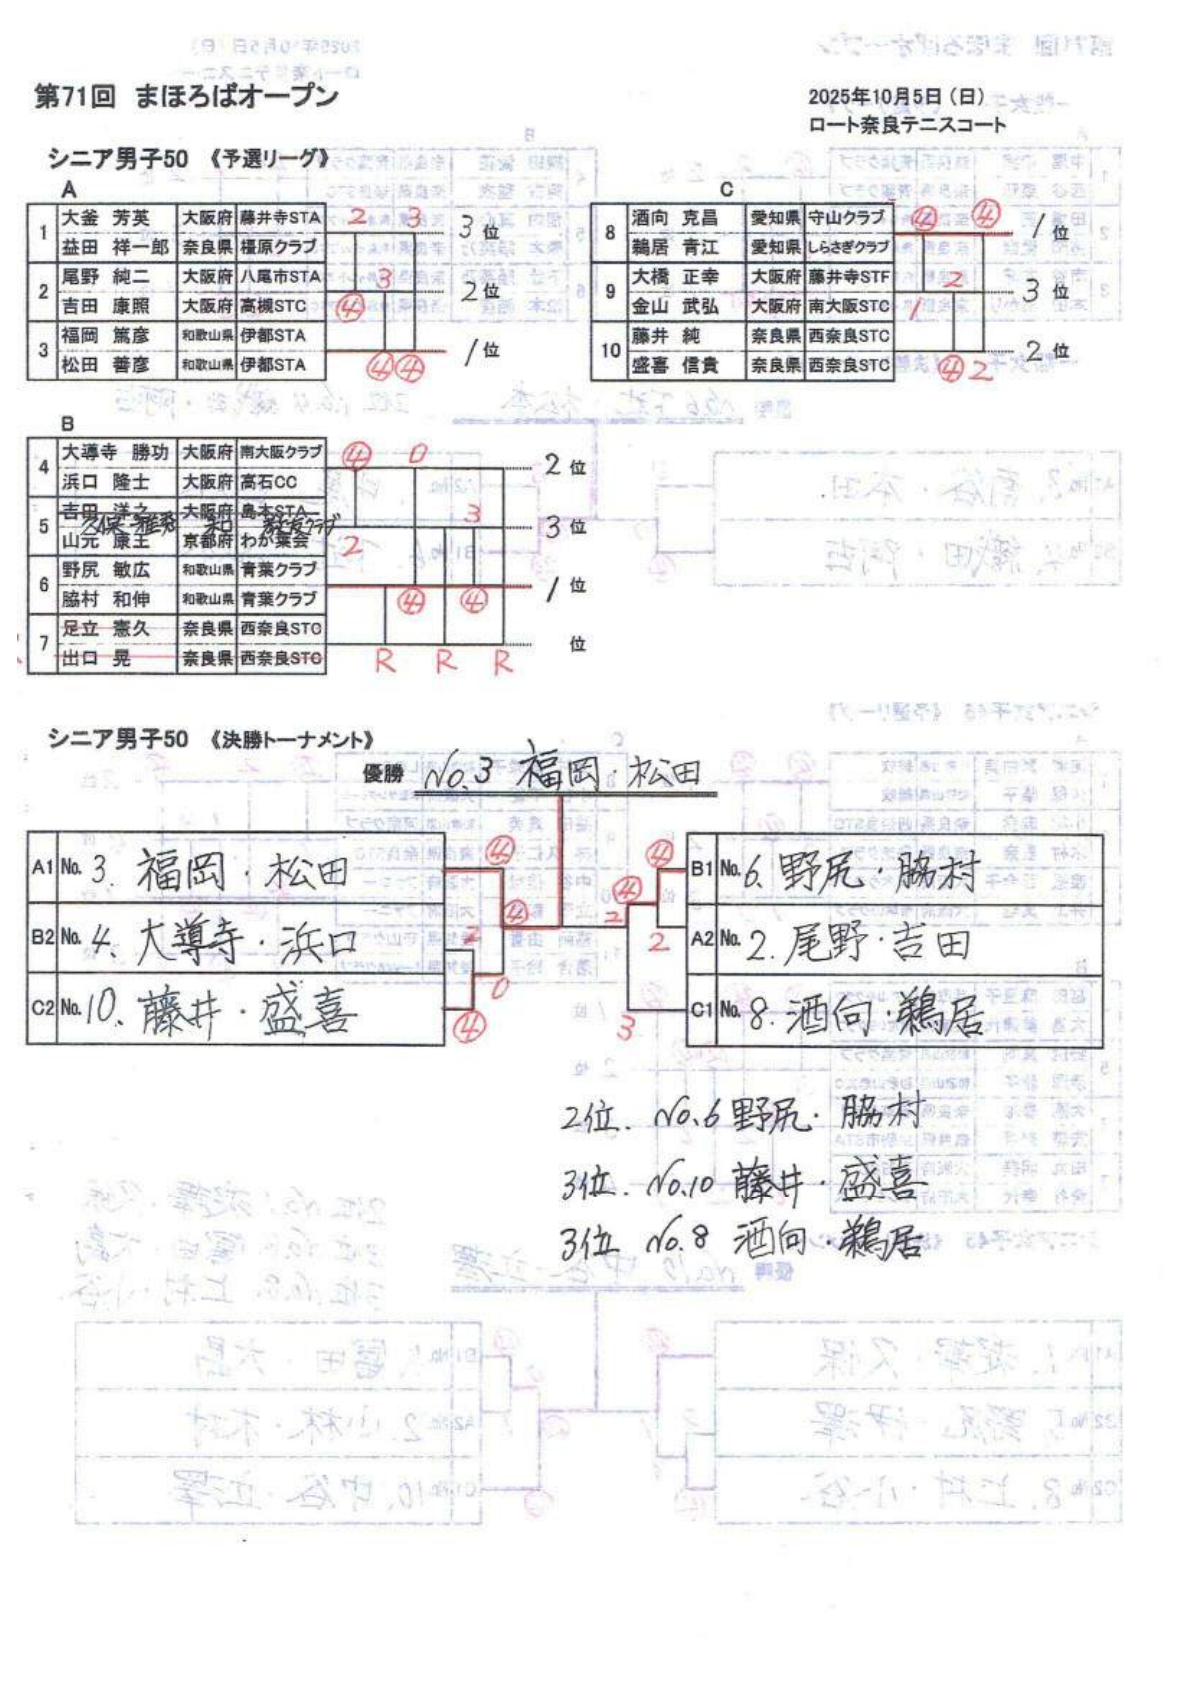 第71回 まほろばオープン
2025年10月5日（日）
ロート奈良テニスコート
シニア男子50 《予選リーグ》
A
1 大釜 芳英 大阪府 藤井寺STA 2 3 3位
益田 祥一郎 奈良県 橿原クラブ
2 尾野 純二 大阪府 八尾市STA 3 2位
吉田 康照 大阪府 高槻STC ④
3 福岡 篤彦 和歌山県 伊都STA 1位
松田 善彦 和歌山県 伊都STA ④ ④
C
8 酒向 克昌 愛知県 守山クラブ ④ ④ 1位
鵜居 青江 愛知県 しらさぎクラブ
9 大橋 正幸 大阪府 藤井寺STF 2 3位
金山 武弘 大阪府 南大阪STC 1
10 藤井 純 奈良県 西奈良STC 2位
盛喜 信貴 奈良県 西奈良STC ④ 2
B
4 大導寺 勝功 大阪府 南大阪クラブ ④ 0 2位
浜口 隆士 大阪府 高石CC
5 吉田 洋之 大阪府 島本STA 3 3位
久保 雅秀
山元 康王 京都府 わか葉会 2
6 野尻 敏広 和歌山県 青葉クラブ 1位
脇村 和伸 和歌山県 青葉クラブ ④ ④
7 足立 憲久 奈良県 西奈良STC 位
出口 晃 奈良県 西奈良STC R R R
シニア男子50 《決勝トーナメント》
優勝 No.3 福岡・松田
A1 No.3. 福岡・松田 ④
B2 No.4. 大導寺・浜口 2 ④ 2
C2 No.10. 藤井・盛喜 ④ 0
B1 No.6. 野尻・脇村 ④ ④
A2 No.2. 尾野・吉田 2
C1 No.8. 酒向・鵜居 3
2位. No.6 野尻・脇村
3位. No.10 藤井・盛喜
3位 No.8 酒向・鵜居